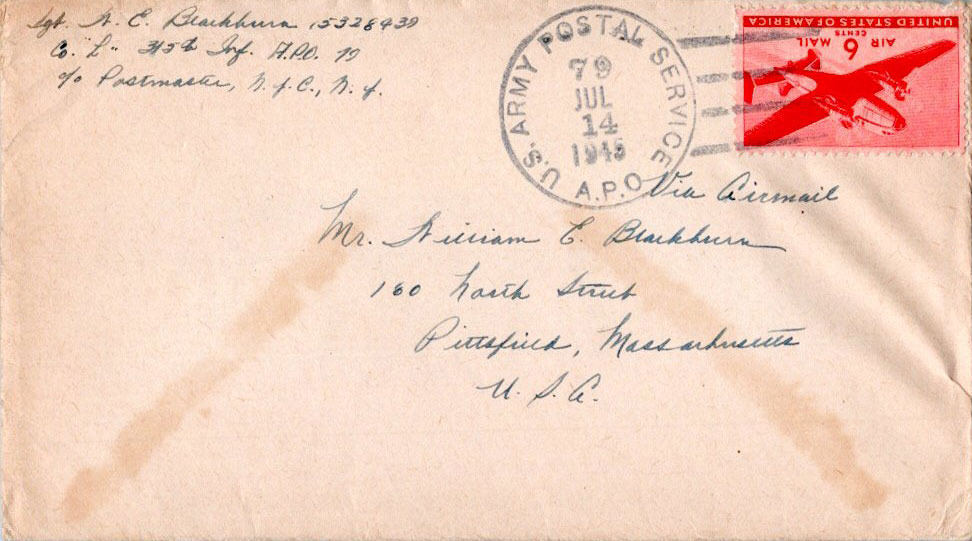 Sgt. W. E. Blackburn 15328439
Co "L" 315th Inf. A.P.O. 79
c/o Postmaster, N.Y.C., N.Y.
U.S. ARMY POSTAL SERVICE
79
JUL
14
1945
A.P.O.
UNITED STATES OF AMERICA
6 CENTS
AIR MAIL
Via Airmail
Mr. William E. Blackburn
160 North Street
Pittsfield, Massachusetts
U. S. A.